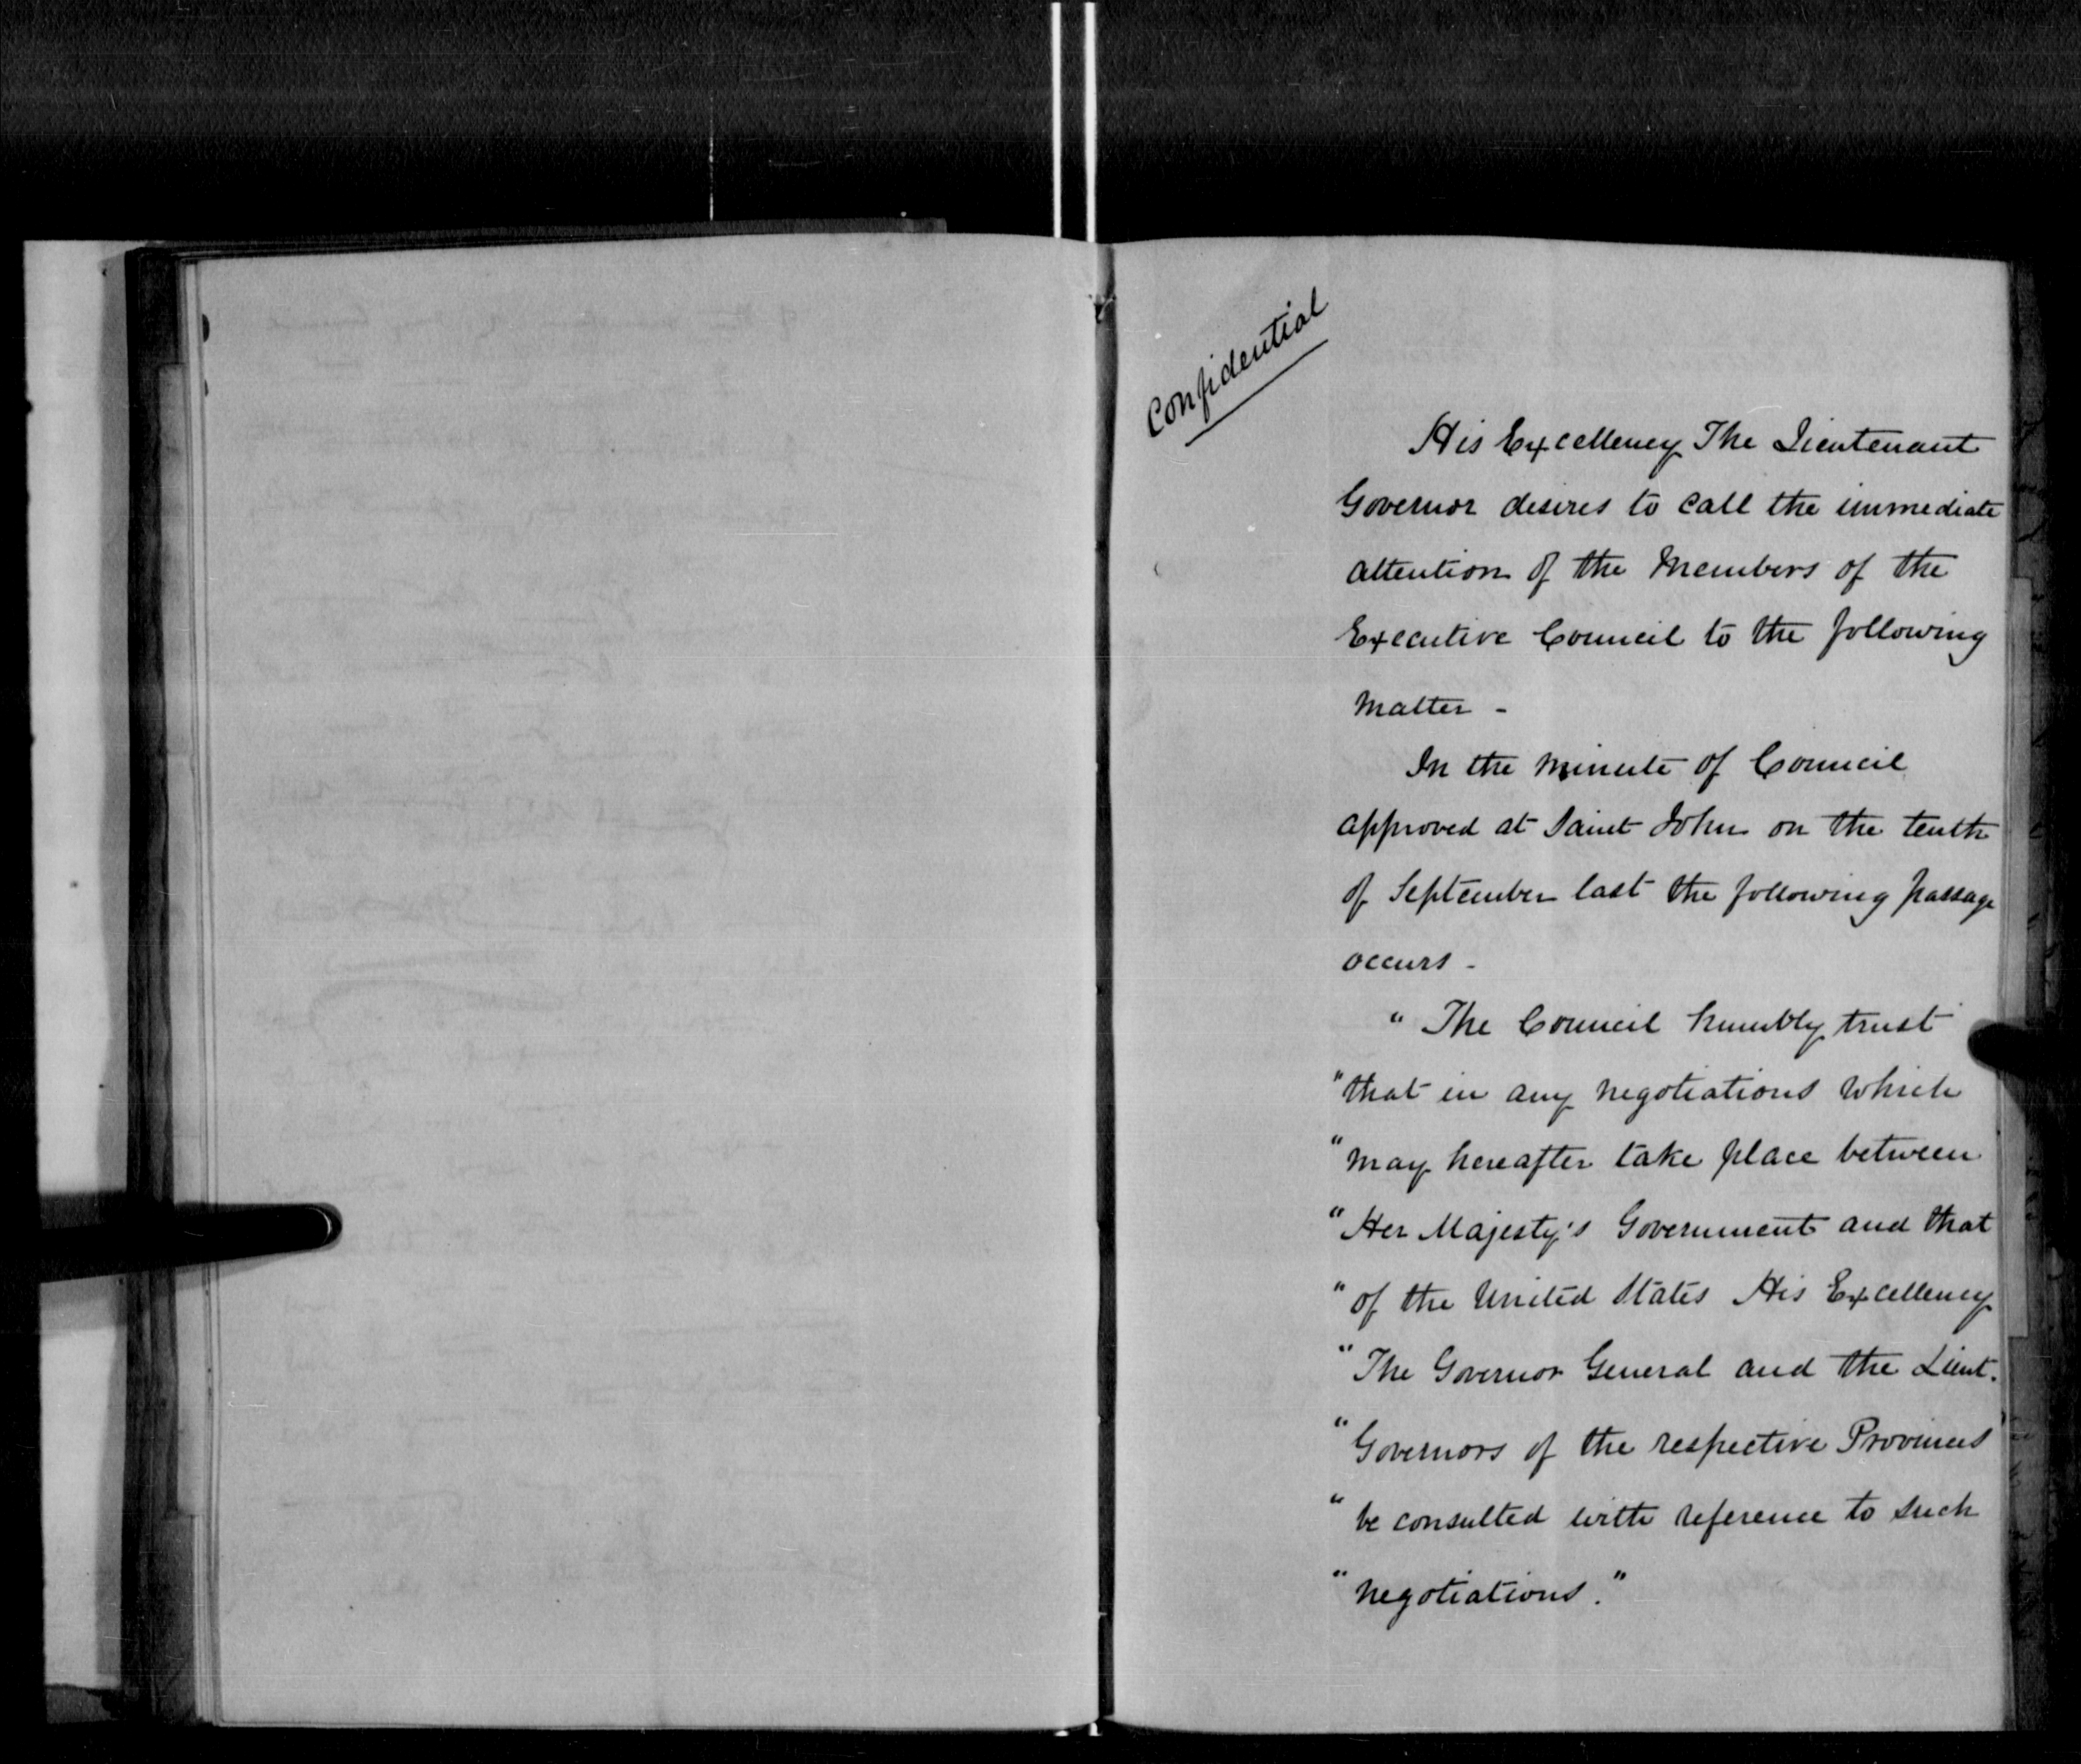 Confidential
His Excellency The Lieutenant
Governor desires to call the immediate
attention of the Members of the
Executive Council to the following
matter -
In the Minute of Council
approved at Saint John on the tenth
of September last the following passage
occurs -
" The Council humbly trust
" that in any negotiations which
" may hereafter take place between
" Her Majesty's Government and that
" of the United States His Excellency
" The Governor General and the Lieut.
" Governors of the respective Provinces
" be consulted with reference to such
" negotiations."